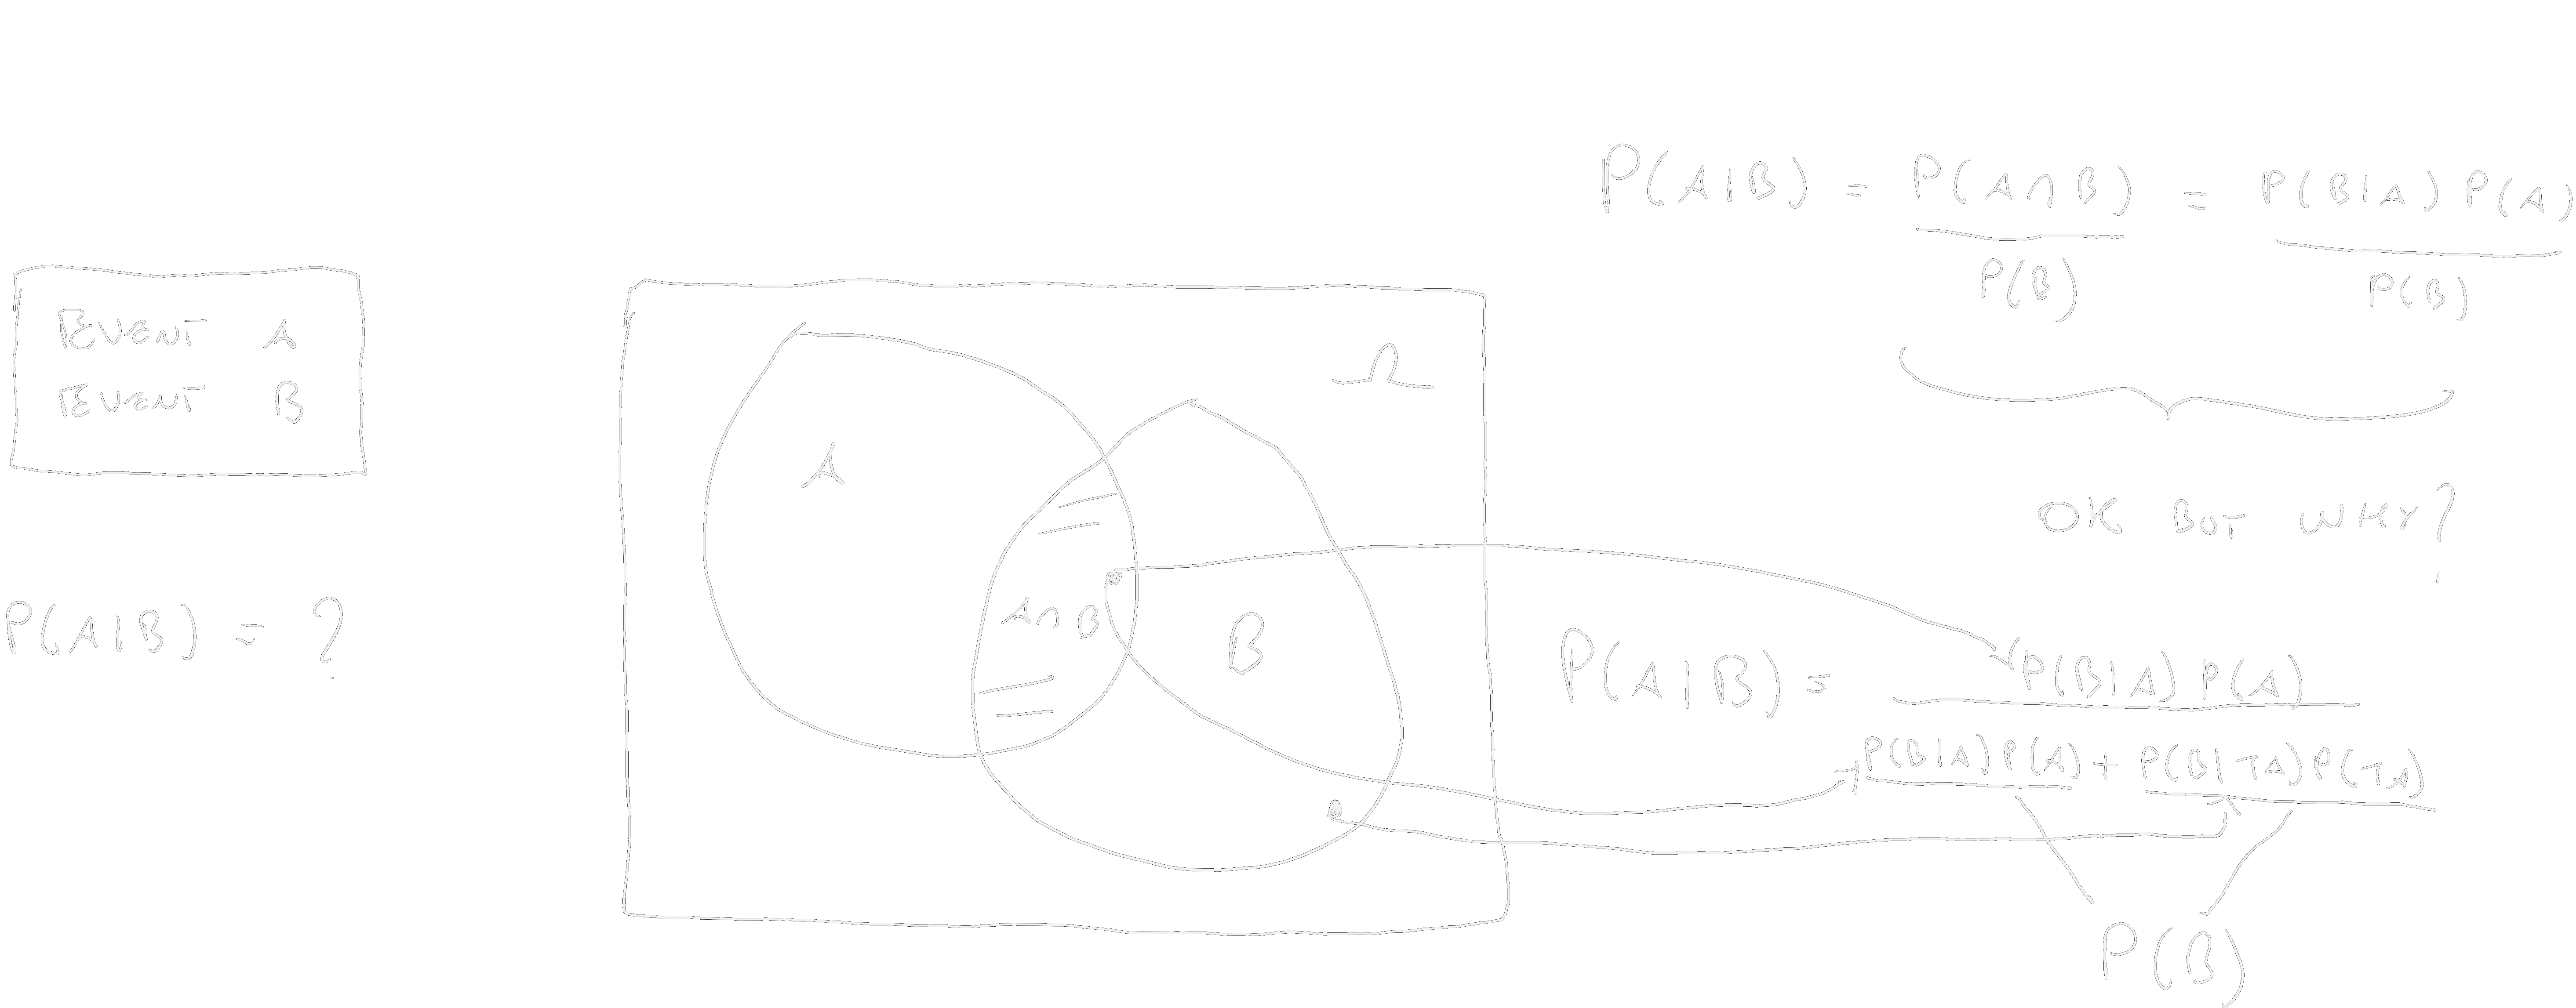 EVENT A
EVENT B
P(A|B) = ?
Ω
A
A∩B
B
P(A|B) = P(A∩B) / P(B) = P(B|A) P(A) / P(B)
OK BUT WHY?
P(A|B) = P(B|A) P(A) / P(B|A) P(A) + P(B|¬A) P(¬A)
P(B)